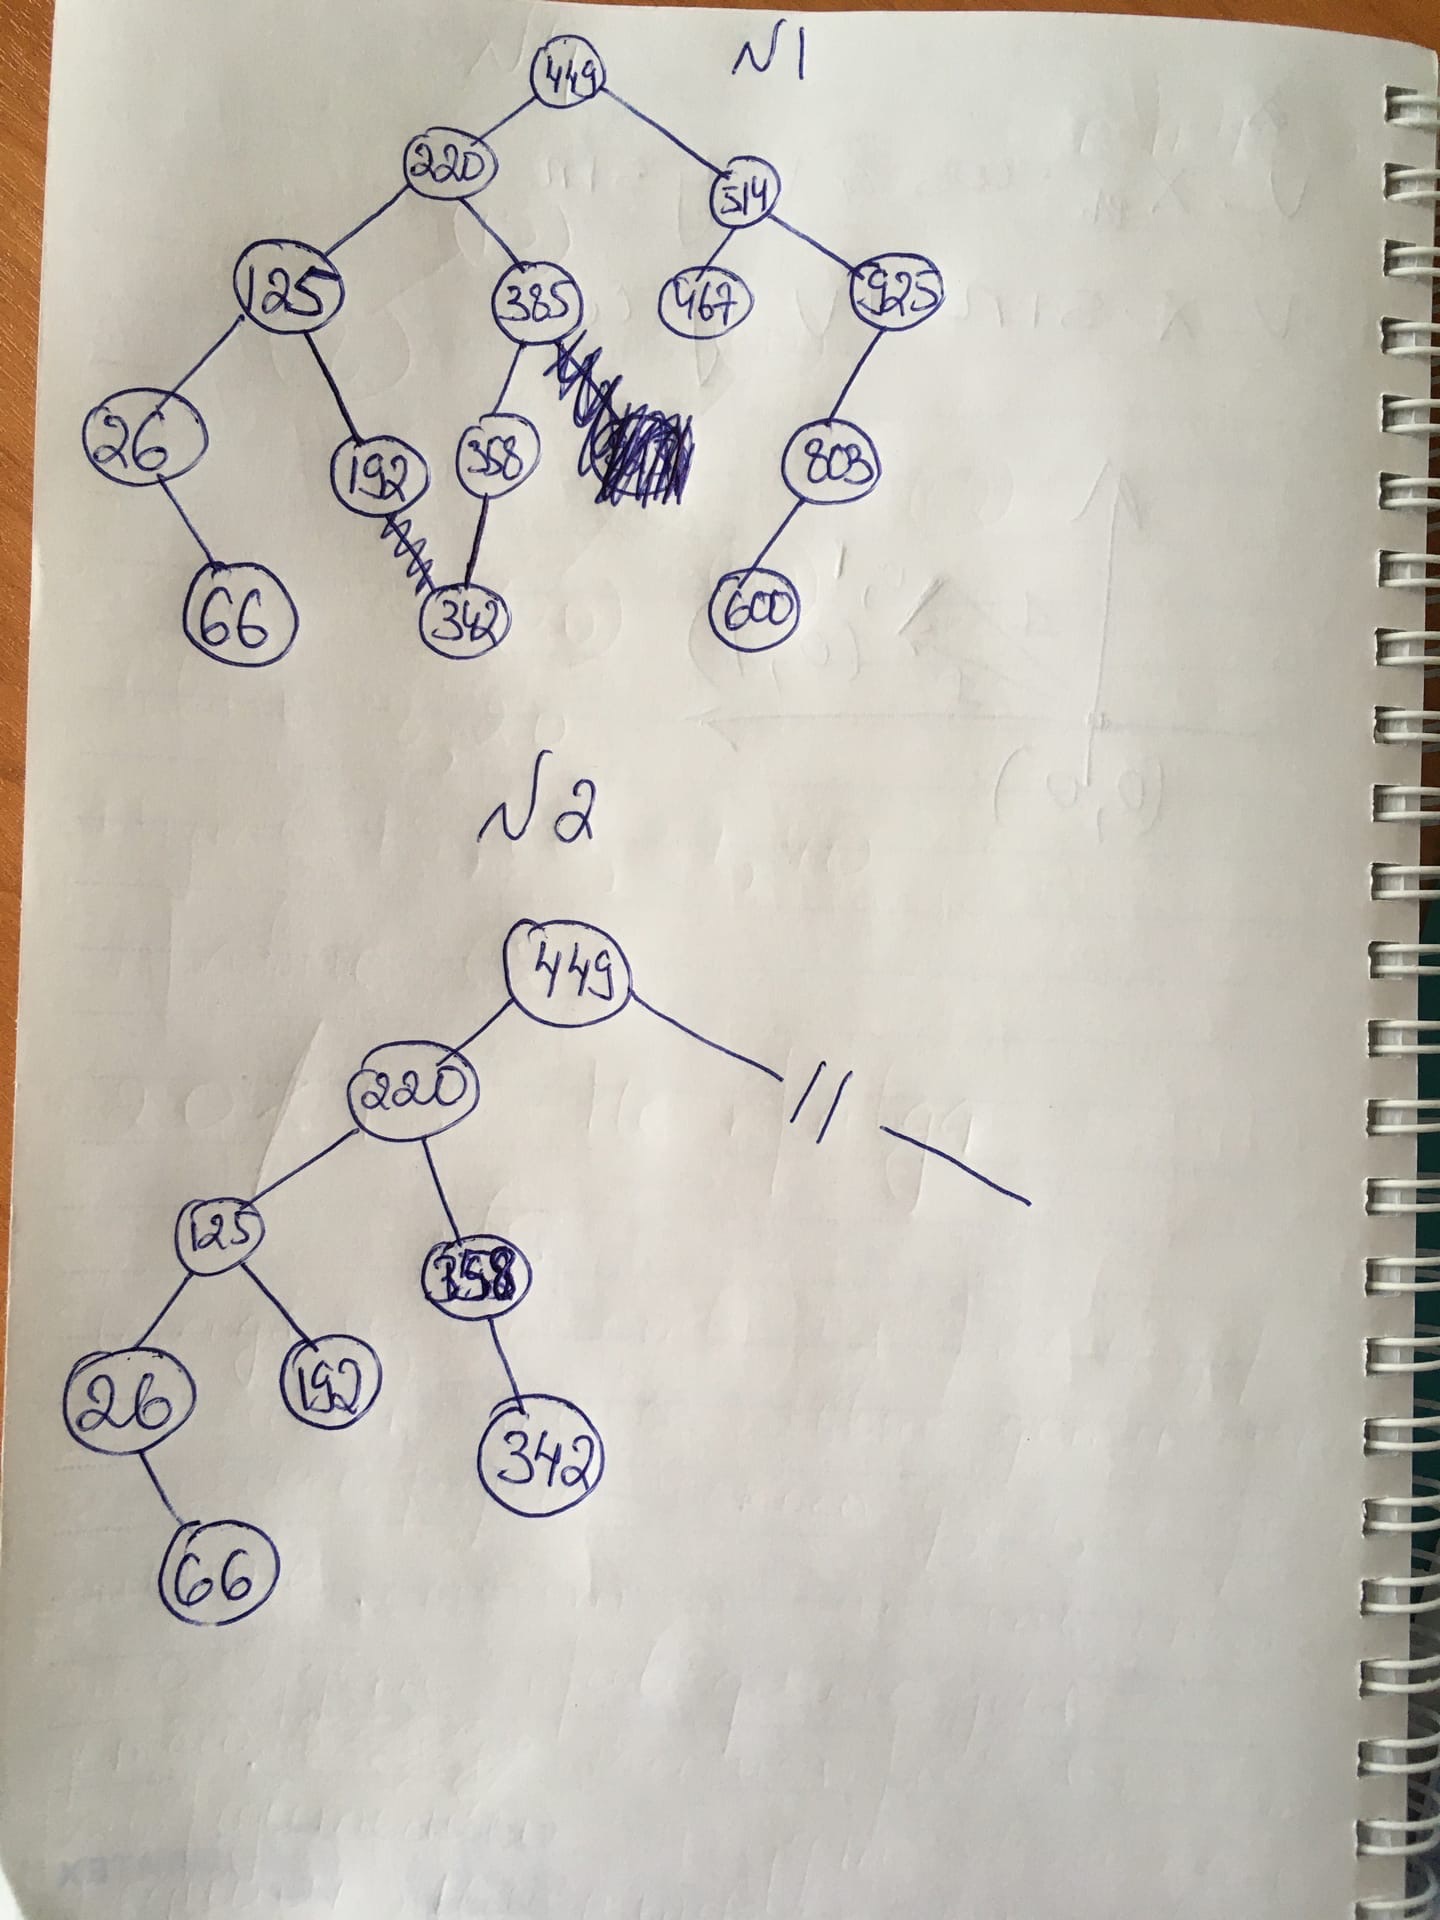 N1
449
220
514
125
385
467
925
26
192
358
803
66
342
600
N2
449
//
220
125
358
26
192
342
66